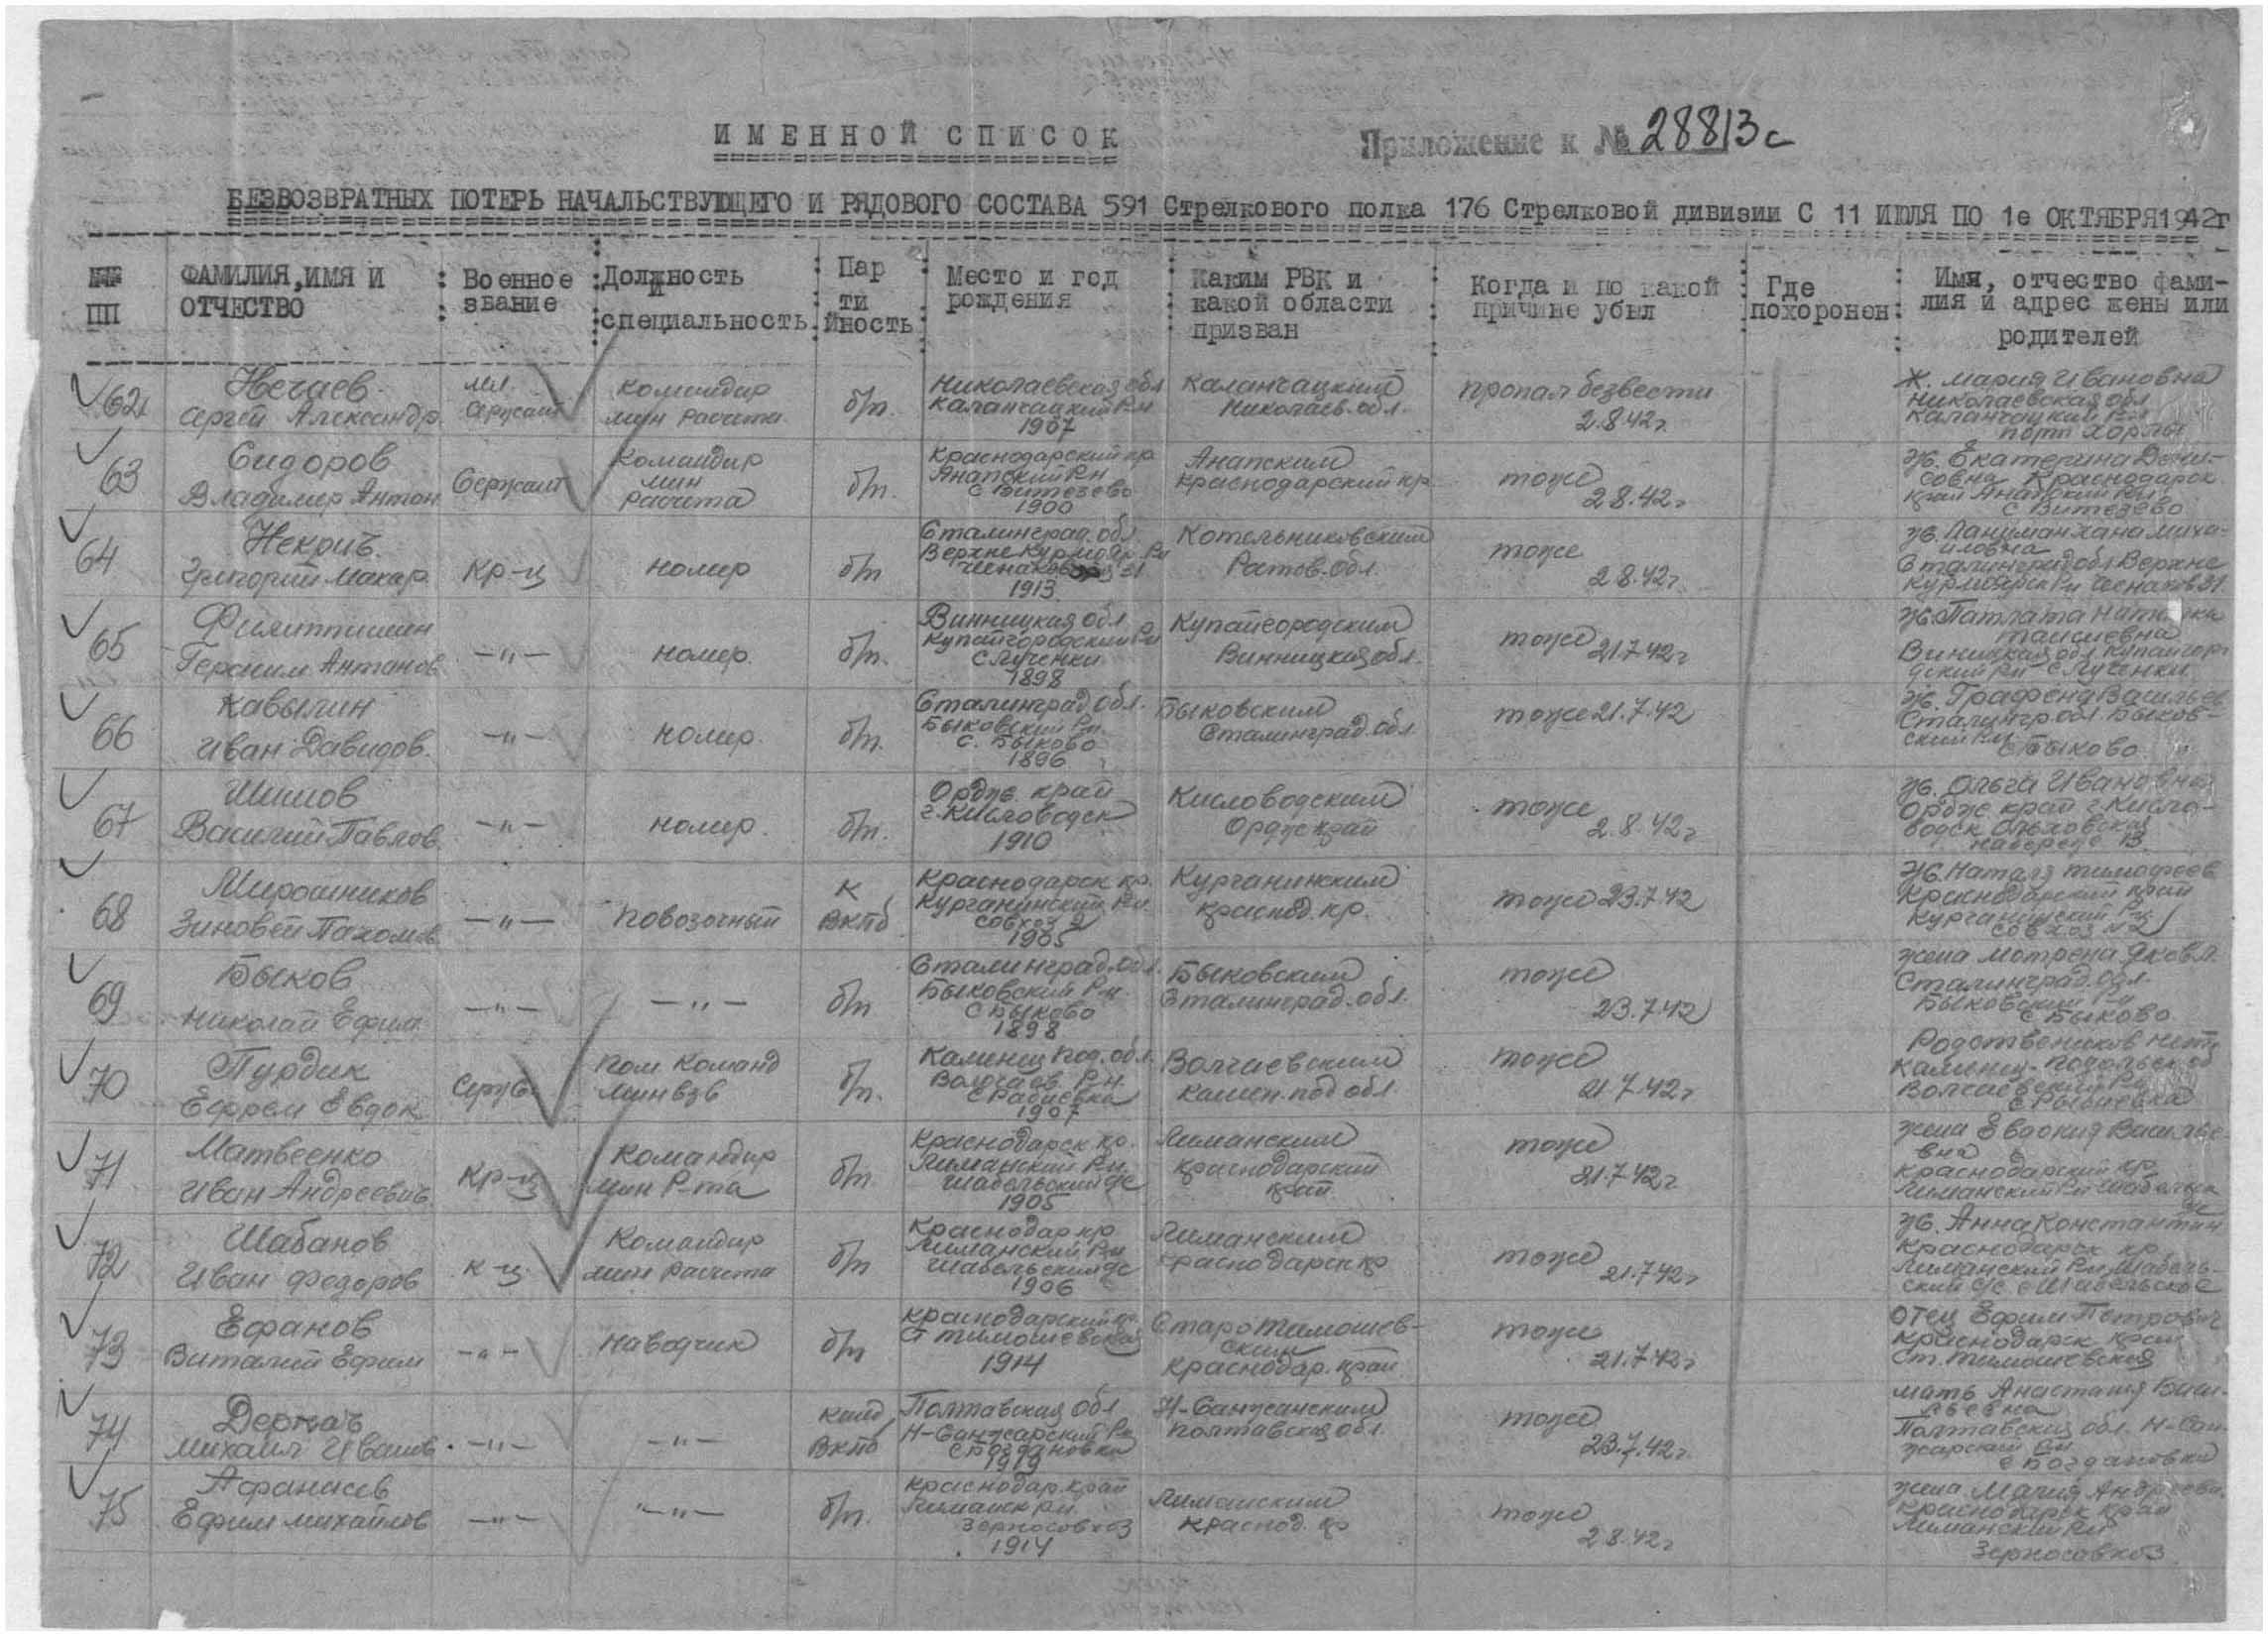 ИМЕННОЙ СПИСОК
Приложение к № 28813с
БЕЗВОЗВРАТНЫХ ПОТЕРЬ НАЧАЛЬСТВУЮЩЕГО И РЯДОВОГО СОСТАВА 591 Стрелкового полка 176 Стрелковой дивизии С 11 ИЮЛЯ ПО 1е ОКТЯБРЯ 1942г
№№
ПП
ФАМИЛИЯ, ИМЯ И
ОТЧЕСТВО
Военное
звание
Должность
и
специальность
Пар
ти
йность
Место и год
рождения
Каким РВК и
какой области
призван
Когда и по какой
причине убыл
Где
похоронен
Имя, отчество фами-
лия и адрес жены или
родителей
62
Нечаев
Сергей Александр.
мл.
Сержант
Командир
мин расчета
б/п.
Николаевская обл
Каланчацкий Р.н
1907
Каланчацким
Николаев. обл.
пропал безвести
2.8.42г.
ж. Мария Ивановна
Николаевская обл
Каланчацкий Р-н
порт Хорлы
63
Сидоров
Владимир Антон
Сержант
Командир
мин
расчета
б/п.
Краснодарский кр
Анапский Р.н
с Витезево
1900
Анапским
Краснодарский кр
тоже
2 8.42г
ж. Екатерина Дени-
совна Краснодарск
край Анапский Р.н
с Витезево
64
Некрич
Григорий Макар.
Кр-ц
номер
б/п
Сталинград. обл.
Верхне Курмояр. Рн
1913
Котельниковским
Ростов. обл.
тоже
2 8.42г.
Сталинград обл Верхне
Курмоярск Рн
65
Герасим Антонов
—"—
номер.
б/п.
Винницкая обл
Купайгородский Рн
с Лученки
1898
Купайгородским
Винницкая обл.
тоже 21.7.42г
Винницкая обл Купайгоро
дский Рн с Лученки
66
Кавылин
Иван Давидов.
—"—
номер.
б/п.
Сталинград Обл.
Быковский Рн.
с. Быково
1896
Быковским
Сталинград. обл
тоже 21.7.42
ж. Графена Васильев
Сталингр обл. Быков-
ский Р.н
с Быково
67
Шишов
Василий Павлов.
—"—
номер.
б/п.
Ордж. край
г. Кисловодск
1910
Кисловодским
Ордж край
тоже
2.8.42г
ж. Ольга Ивановна
Ордж край г. Кисло-
водск Ольховская
набереж 13.
68
Мирошников
Зиновей Пахомов
—"—
повозочный
К
ВКПб
Краснодарск кр.
Курганинский Рн.
совхоз 2
1905
Курганинским
Краснод. кр.
тоже 23.7.42
ж. Наталя Тимофеев
Краснодарский край
Курганинский Рн
совхоз №2
69
Быков
Николай Ефим.
—"—
—"—
б/п
Сталинград. Обл.
Быковский Р-н.
с Быково
1898
Быковским
Сталинград. обл.
тоже
23.7.42
жена Мотрена Яковл.
Сталинград. Обл.
Быковский Р-н
с Быково
70
Пурдик
Ефрем Евдок
Серж.
Пом Команд
Мин взв
б/п.
Каменец Под. обл.
1907
Волчаевским
Камен. под обл.
тоже
21.7.42г
Родствеников нет
Каменец-Подольск об
71
Матвеенко
Иван Андреевич
Кр-ц
Командир
мин Р-та
б/п
Краснодарск кр.
Лиманский Рн.
Шабельский с/с
1905
Лиманским
Краснодарский
край
тоже
21.7.42г
жена Евдокия Василье-
вна
Краснодарский кр
Лиманский Рн Шабельск
с/с
72
Шабанов
Иван Федоров
К-ц
Командир
мин расчета
б/п
Краснодар кр
Лиманский Рн
Шабельский с/с
1906
Лиманским
Краснодарск кр
тоже
21.7.42г
ж. Анна Константин
Краснодарск кр
Лиманский Рн Шабель-
ский с/с с Шабельское
73
Ефанов
Виталий Ефим
—"—
Наводчик
б/п
Краснодарский кр.
Ст Тимошевская
1914
Старо Тамошев-
ским
Краснодар. край
тоже
21.7.42г
отец Ефим Петрович
Краснодарск край
Ст. Тимошевская
74
Деркач
Михаил Иванов.
—"—
—"—
канд
ВКПб
Полтавская Обл
Н-Санжарский Рн
с Богдановка
1919
Н-Санжанским
Полтавская обл.
тоже
23.7.42г.
мать Анастасия Васи-
льевна
Полтавская обл. Н-Сан-
жарский Рн
с Богдановка
75
Афанасев
Ефим Михайлов
—"—
—"—
б/п.
Краснодар. край
Лиманск Рн.
Зерносовхоз
1914
Лиманским
Краснод. кр
тоже
2 8.42г
жена Мария Андреевн.
Краснодарск край
Лиманский Рн
Зерносовхоз